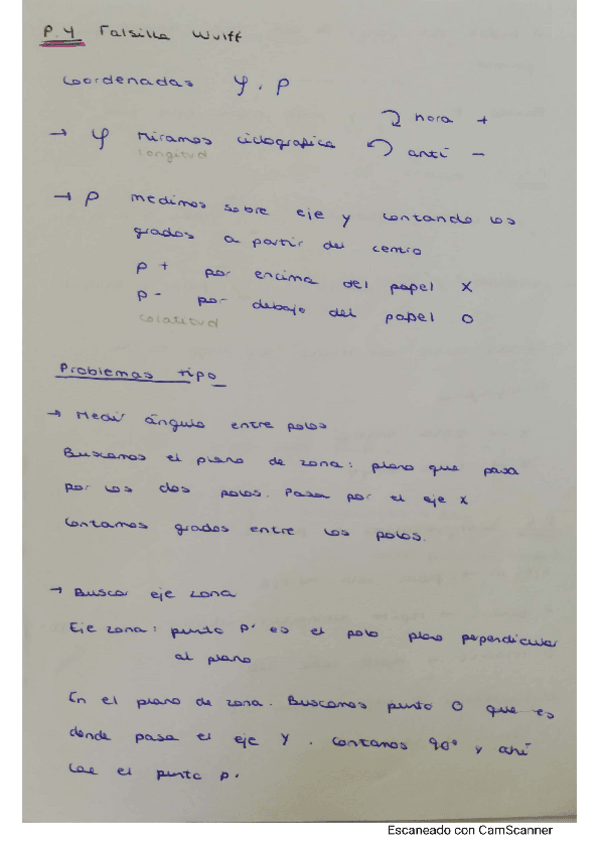 P.4 Falsilla Wulff
Coordenadas φ, ρ
hora +
→ φ Miramos ciclografica anti −
longitud
→ ρ medimos sobre eje y contando los
grados a partir del centro
ρ + por encima del papel X
ρ - por debajo del papel O
colatitud
Problemas tipo
→ Medir ángulo entre polos
Buscamos el plano de zona: plano que pasa
por los dos polos. Pasa por el eje x
Contamos grados entre los polos.
→ Buscar eje zona
Eje zona: punto P' es el polo plano perpendicular
al plano
En el plano de zona. Buscamos punto O que es
donde pasa el eje Y. Contamos 90° y ahí
cae el punto P'
Escaneado con CamScanner